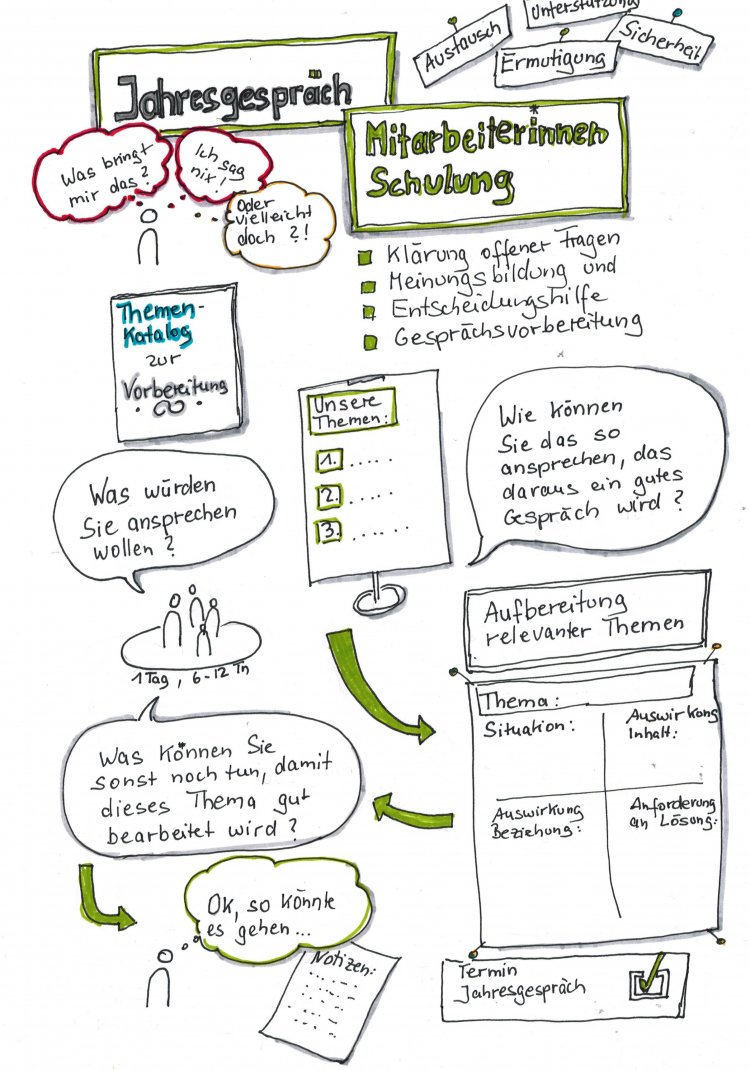 Unterstützung
Austausch
Ermutigung
Sicherheit
Jahresgespräch
Mitarbeiterinnen
Schulung
Was bringt
mir das?
Ich sag
nix!
Oder
vielleicht
doch ?!
Klärung offener Fragen
Meinungsbildung und
Entscheidungshilfe
Gesprächsvorbereitung
Themen-
Katalog
zur
Vorbereitung
Unsere
Themen:
1. .....
2. .....
3. ......
Wie können
Sie das so
ansprechen, das
daraus ein gutes
Gespräch wird?
Was würden
Sie ansprechen
wollen?
1 Tag, 6-12 Tn
Aufbereitung
relevanter Themen
Thema:
Situation:
Auswirkong
Inhalt:
Auswirkung
Beziehung:
Anforderung
an Lösung:
Was können Sie
sonst noch tun, damit
dieses Thema gut
bearbeitet wird?
Ok, so könnte
es gehen...
Notizen:
Termin
Jahresgespräch